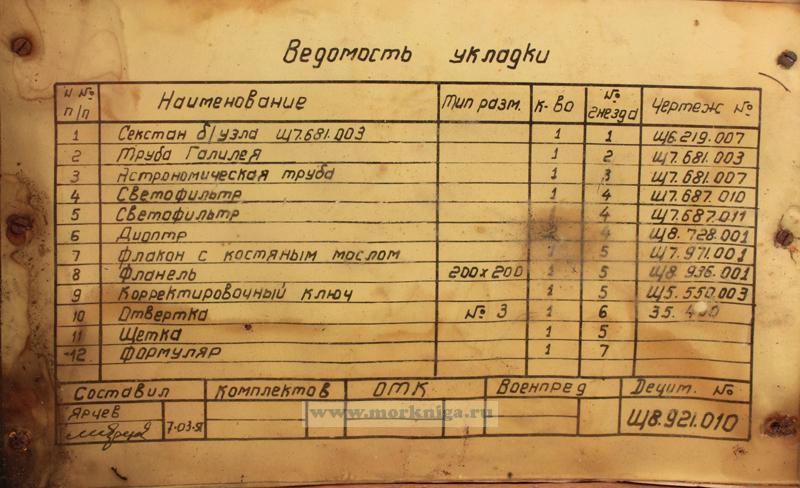 Ведомость укладки
N №
п/п Наименование Тип разм. к-во № гнезда Чертеж №
1 Секстан б/узла Щ7.681.003 1 1 Щ6.219.007
2 Труба Галилея 1 2 Щ7.681.003
3 Астрономическая труба 1 3 Щ7.681.007
4 Светофильтр 1 4 Щ7.687.010
5 Светофильтр 4 Щ7.687.011
6 Диоптр 4 Щ8.728.001
7 Флакон с костяным маслом 1 5 Щ7.971.001
8 Фланель 200х200 1 5 Щ8.936.001
9 Корректировочный ключ 1 5 Щ5.550.003
10 Отвертка № 3 1 6 35.
11 Щетка 1 5
12 Формуляр 1 7
Составил Комплектов ОТК Военпред Децит. №
Ярцев
7-03-91 Щ8.921.010
www.morkniga.ru